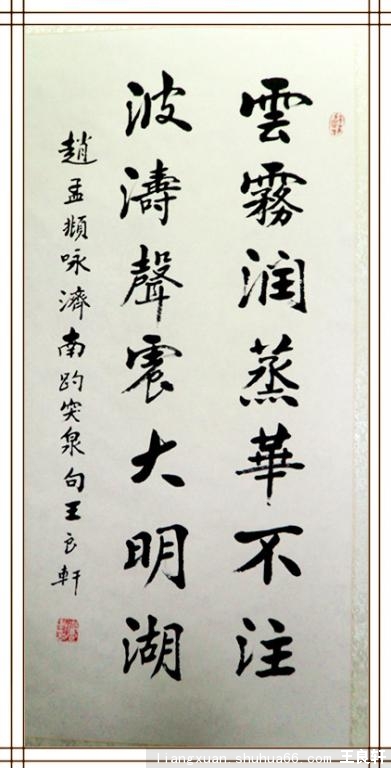 雲霧润蒸華不注
波濤聲震大明湖
趙孟頫咏濟南趵突泉句王良軒
liangxuan.shuhua66.com 王良軒